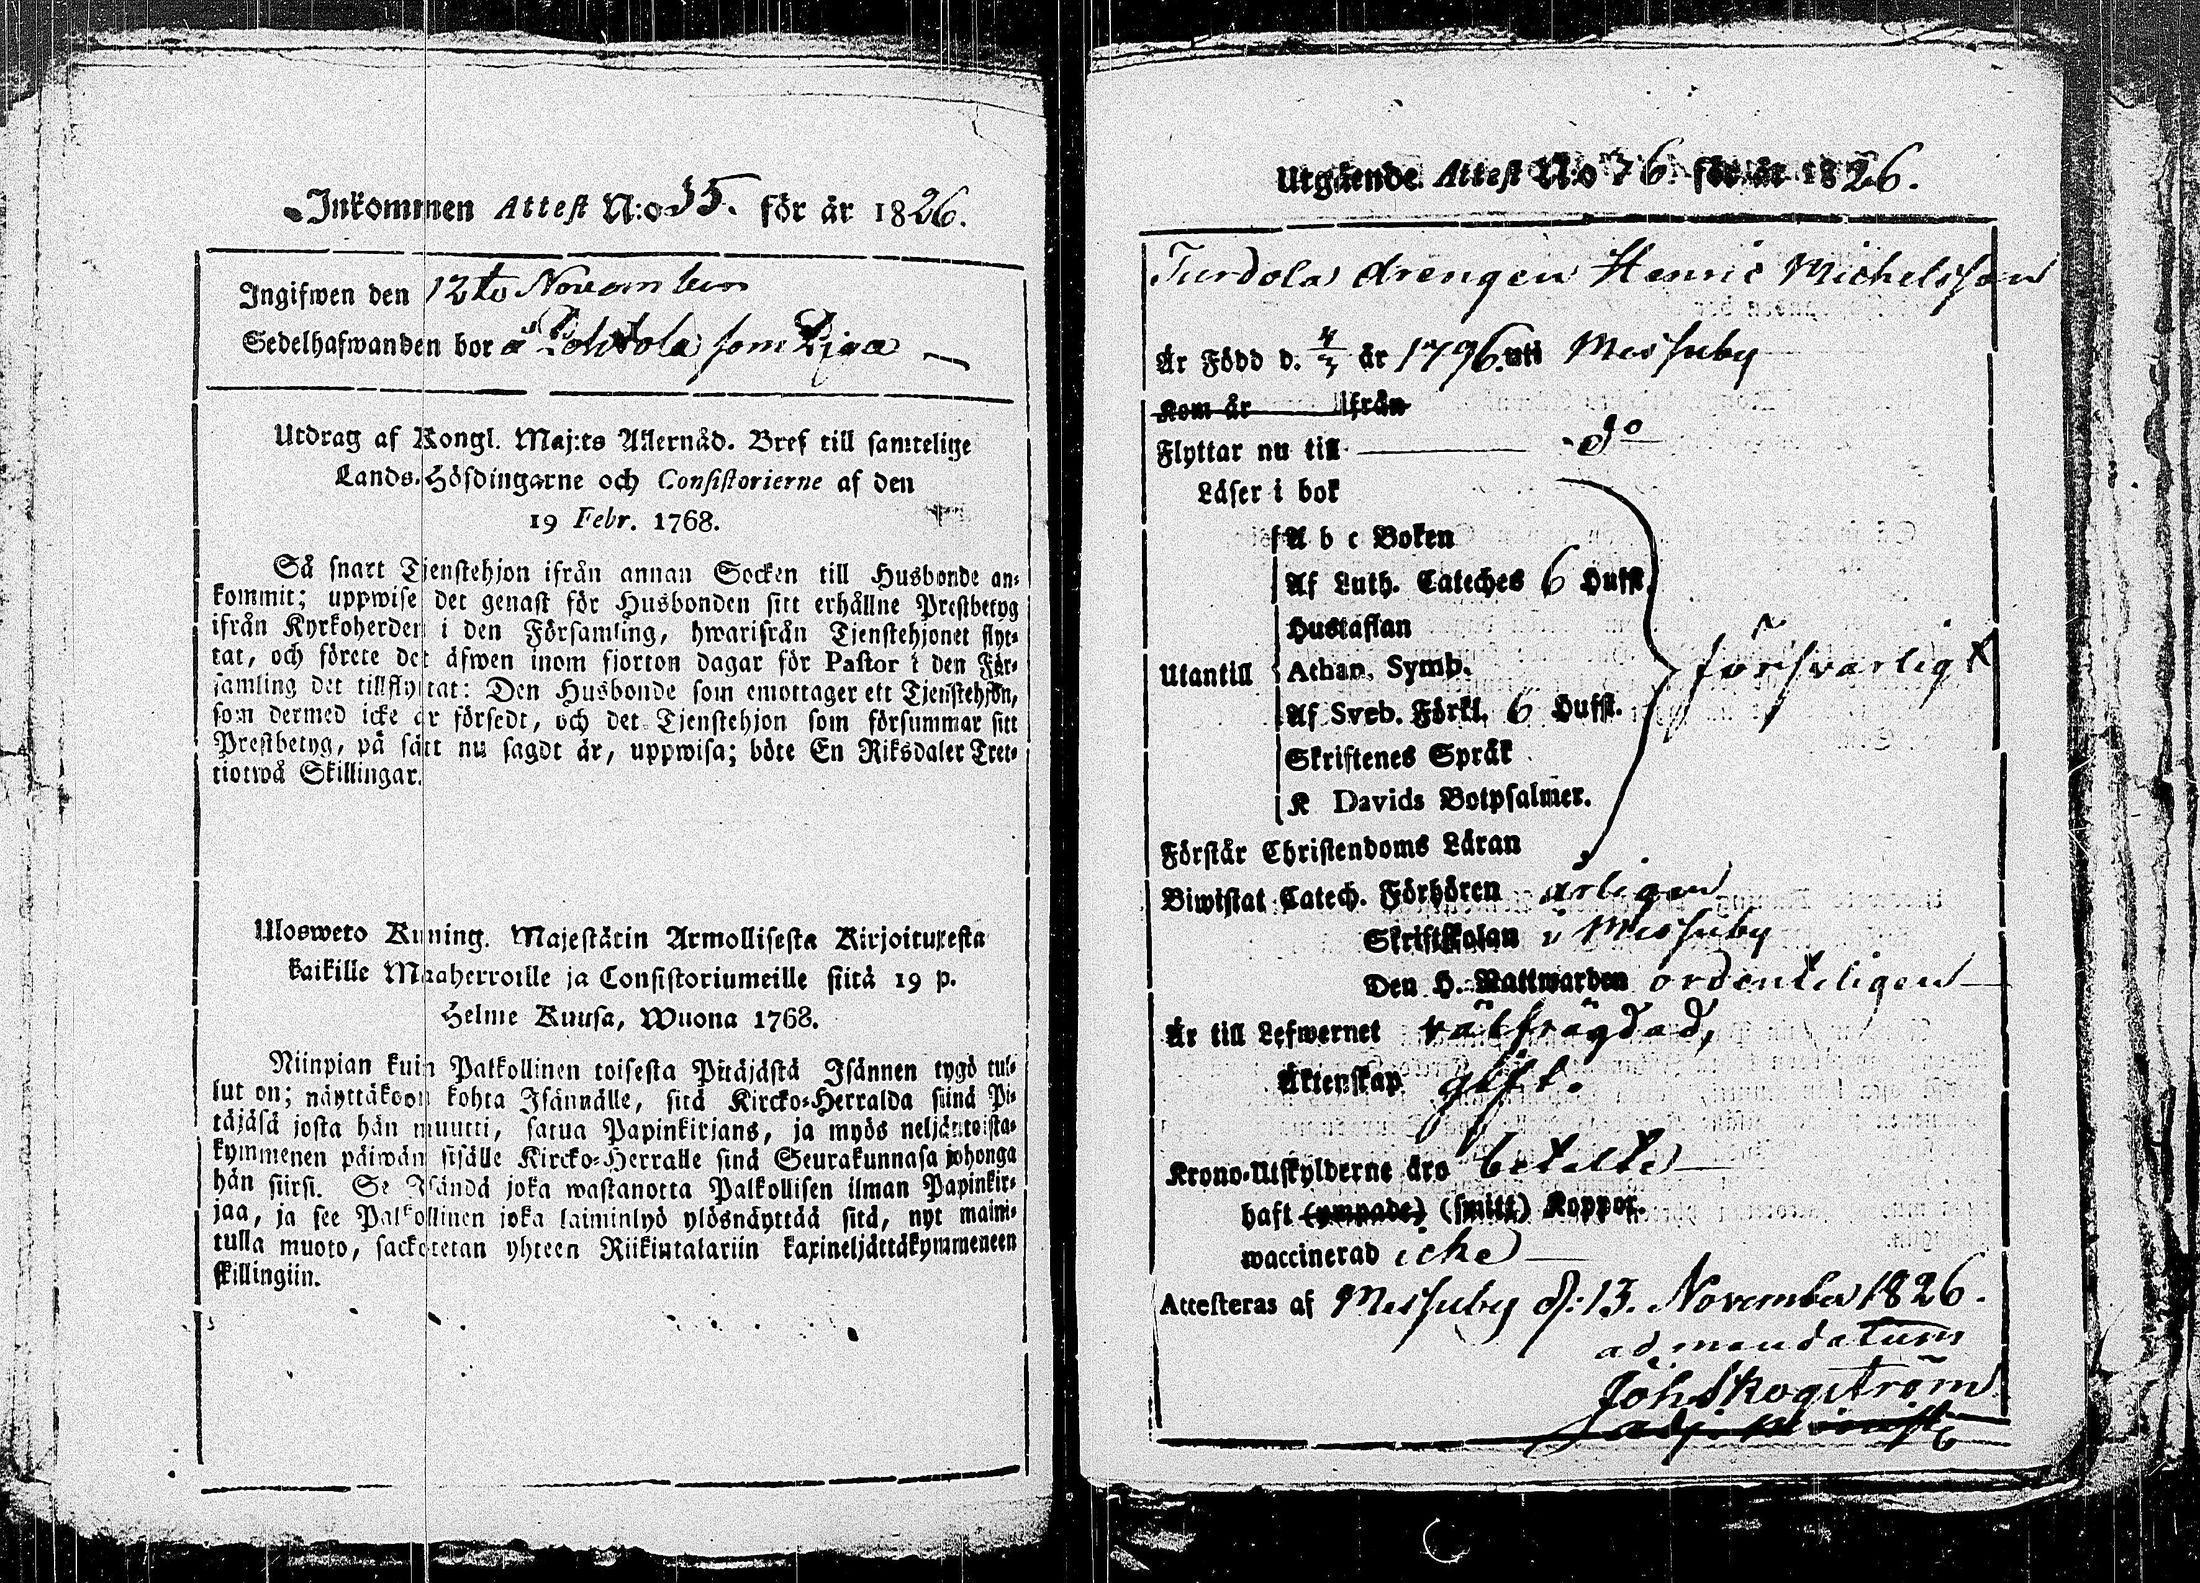 Inkommen Attest N:o 55. för år 1826.
Ingifwen den 12te November
Sedelhafwanden bor å Pohtola som Piga
Utdrag af Kongl. Maj:ts Allernåd. Bref till samtelige
Lands-Höfdingarne och Consistorierne af den
19 Febr. 1768.
Så snart Tjenstehjon ifrån annan Socken till Husbonde an-
kommit; uppwise det genast för Husbonden sitt erhållne Prestbetyg
ifrån Kyrkoherden i den Församling, hwarifrån Tjenstehjonet flyt-
tat, och förete det äfwen inom fjorton dagar för Pastor i den För-
samling det tillflyttat: Den Husbonde som emottager ett Tjenstehjon,
som dermed icke är försedt, och det Tjenstehjon som försummar sitt
Prestbetyg, på sätt nu sagdt är, uppwisa; böte En Riksdaler Tret-
tiotwå Skillingar.
Ulosweto Kuning. Majestätin Armollisesta Kirjoituxesta
kaikille Maaherroille ja Consistoriumeille siitä 19 p.
Helme Kuusa, Wuona 1768.
Niinpian kuin Palkollinen toisesta Pitäjästä Isännen tygö tul-
lut on; näyttäkoon kohta Isännälle, sitä Kircko-Herralda siinä Pi-
täjäsä josta hän muutti, satua Papinkirjans, ja myös neljäntoista-
kymmenen päiwän sisälle Kircko-Herralle sinä Seurakunnasa johonga
hän siirsi. Se Isändä joka wastanotta Palkollisen ilman Papinkir-
jaa, ja see Palkollinen joka laiminlyö ylösnäyttää sitä, nyt maini-
tulla muoto, sackotetan yhteen Riikintalariin kaxineljättäkymmeneen
skillingiin.
Utgående Attest N:o 76. för år 1826.
Turdola drengen Henric Michelsson
Är Född d. 4/3 år 1796. uti Messuby
Kom år ifrån
Flyttar nu till do
Läser i bok
A b c Boken
Af Luth. Cateches 6 Hufst.
Hustaflan
Utantill Athan. Symb. försvarligt
Af Sveb. Förkl. 6 Hufst.
Skriftenes Språk
K Davids Botpsalmer.
Förstår Christendoms Läran
Biwistat Catech. Förhören årligen
Skriftskolan i Messuby
Den H. Nattwarden ordenteligen
Är till Lefwernet välfrägdad,
Äktenskap gift.
Krono-Utskylderne äro betalte
haft (ympade) (smitt) Koppor.
waccinerad icke
Attesteras af Messuby d: 13. November 1826.
ad mandatum
Joh Skogström
adj. minist